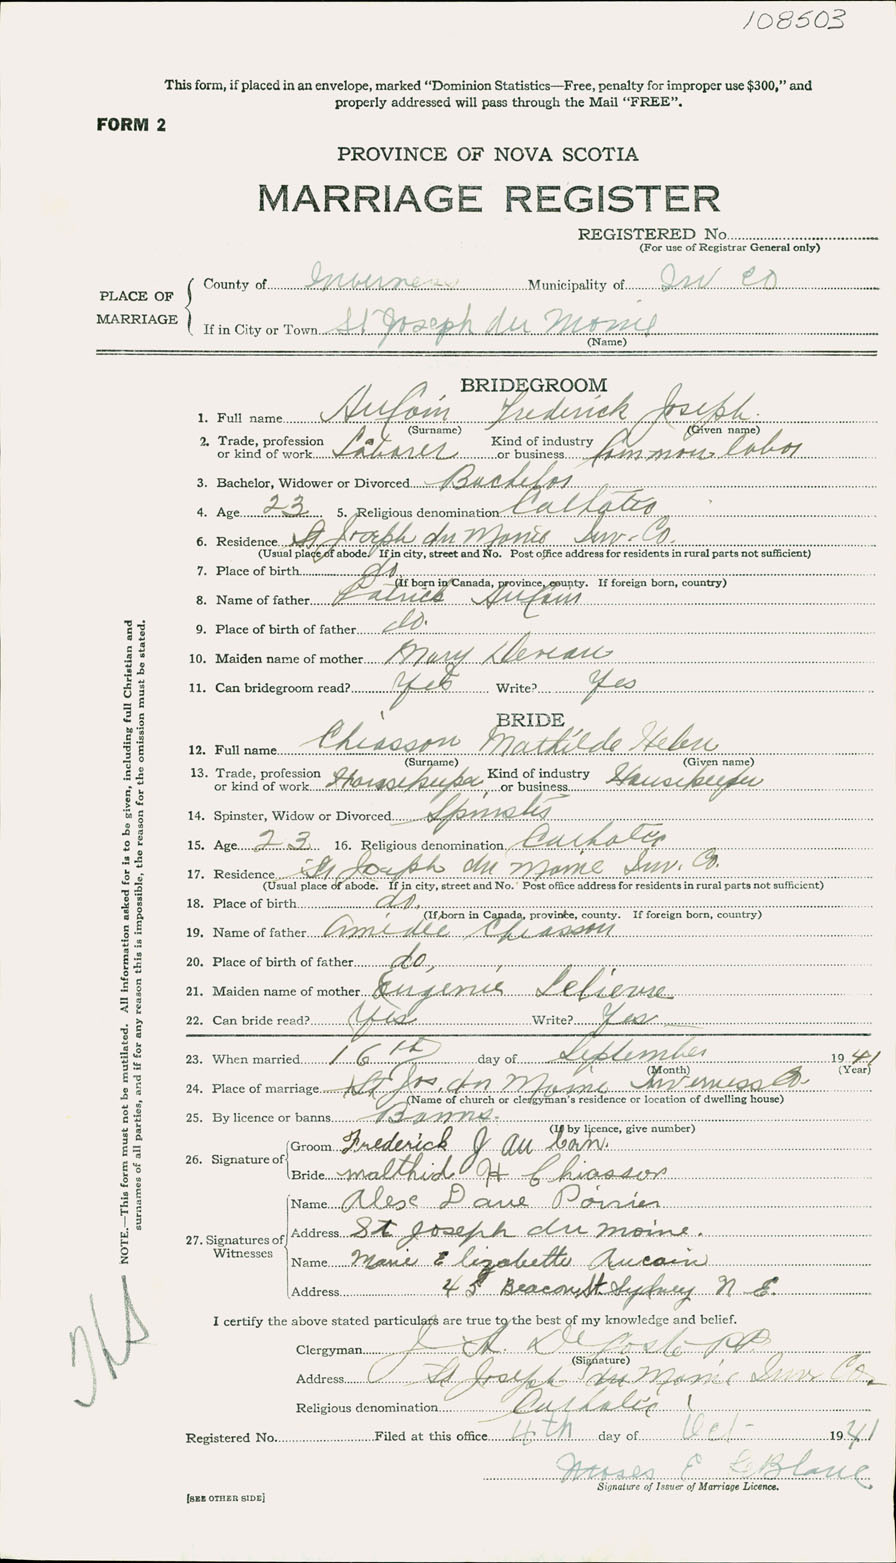 108503
This form, if placed in an envelope, marked "Dominion Statistics—Free, penalty for improper use $300," and
properly addressed will pass through the Mail "FREE".
FORM 2
PROVINCE OF NOVA SCOTIA
MARRIAGE REGISTER
REGISTERED No.
(For use of Registrar General only)
PLACE OF MARRIAGE
County of Inverness Municipality of Inv Co
If in City or Town St Joseph du Moine
(Name)
BRIDEGROOM
1. Full name AuCoin Frederick Joseph
(Surname) (Given name)
2. Trade, profession or kind of work Laborer Kind of industry or business Common labor
3. Bachelor, Widower or Divorced Bachelor
4. Age 23 5. Religious denomination Catholic
6. Residence St Joseph du Moine Inv. Co.
(Usual place of abode. If in city, street and No. Post office address for residents in rural parts not sufficient)
7. Place of birth do.
(If born in Canada, province, county. If foreign born, country)
8. Name of father Patrick AuCoin
9. Place of birth of father do.
10. Maiden name of mother Mary Deveau
11. Can bridegroom read? Yes Write? Yes
BRIDE
12. Full name Chiasson Mathilde Helen
(Surname) (Given name)
13. Trade, profession or kind of work Housekeeper Kind of industry or business Housekeeper
14. Spinster, Widow or Divorced Spinster
15. Age 23 16. Religious denomination Catholic
17. Residence St Joseph du Moine Inv. Co.
(Usual place of abode. If in city, street and No. Post office address for residents in rural parts not sufficient)
18. Place of birth do.
(If born in Canada, province, county. If foreign born, country)
19. Name of father Amidee Chiasson
20. Place of birth of father do.
21. Maiden name of mother Eugenie Lelievre
22. Can bride read? Yes Write? Yes
23. When married 16th day of September 1941
(Month) (Year)
24. Place of marriage St Jos. du Moine Inverness Co.
(Name of church or clergyman's residence or location of dwelling house)
25. By licence or banns Banns.
(If by licence, give number)
26. Signature of
Groom Frederick J Au Coin.
Bride malthid H Chiasson
27. Signatures of Witnesses
Name Alex Dave Poirier
Address St Joseph du moine.
Name Marie Elizabette Aucoin
Address 45 Beacon St Sydney N E.
I certify the above stated particulars are true to the best of my knowledge and belief.
Clergyman J. A. DeCoste P.P.
(Signature)
Address St Joseph du Moine Inv. Co.
Religious denomination Catholic
Registered No. Filed at this office 4th day of Oct- 1941
Moses E LeBlanc
Signature of Issuer of Marriage Licence.
[SEE OTHER SIDE]
NOTE.—This form must not be mutilated. All information asked for is to be given, including full Christian and
surnames of all parties, and if for any reason this is impossible, the reason for the omission must be stated.